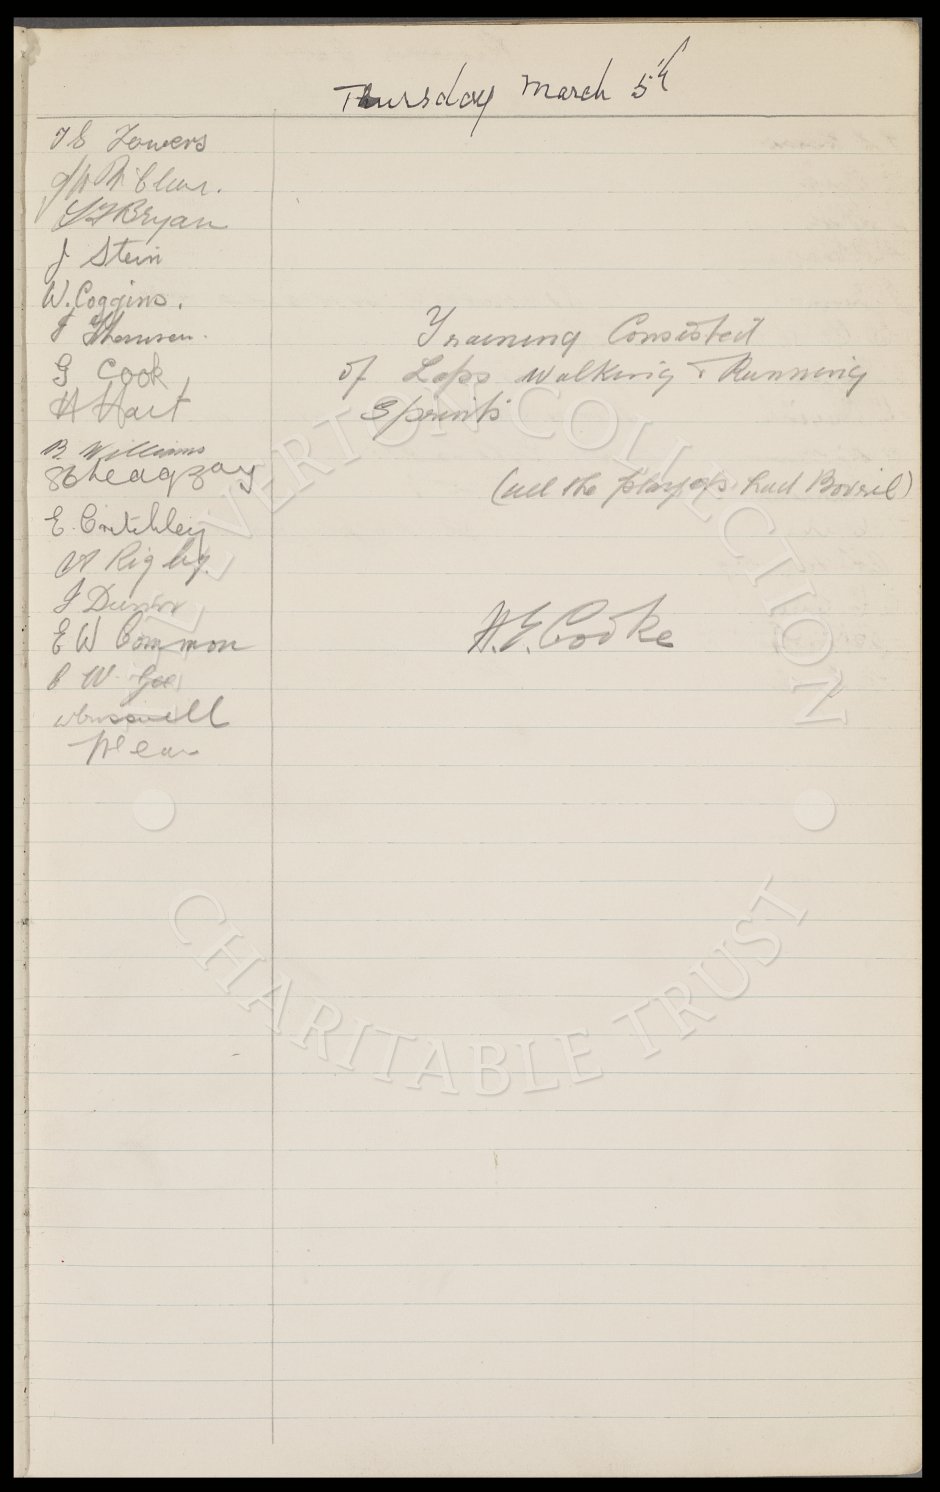 Thursday March 5th
T E Towers
Clear.
Bryan
J Stein
W. Coggins.
T Thomson.
G Cook
H Hart
B. Williams
Leadgzay
E. Critchley
A Rigby.
J Dunn
E W Common
C W Gee
Cresswell
Training Consisted
of Laps Walking & Running
Sprints
(all the players had Bovril)
H. E. Cooke
EVERTON COLLECTION
CHARITABLE TRUST